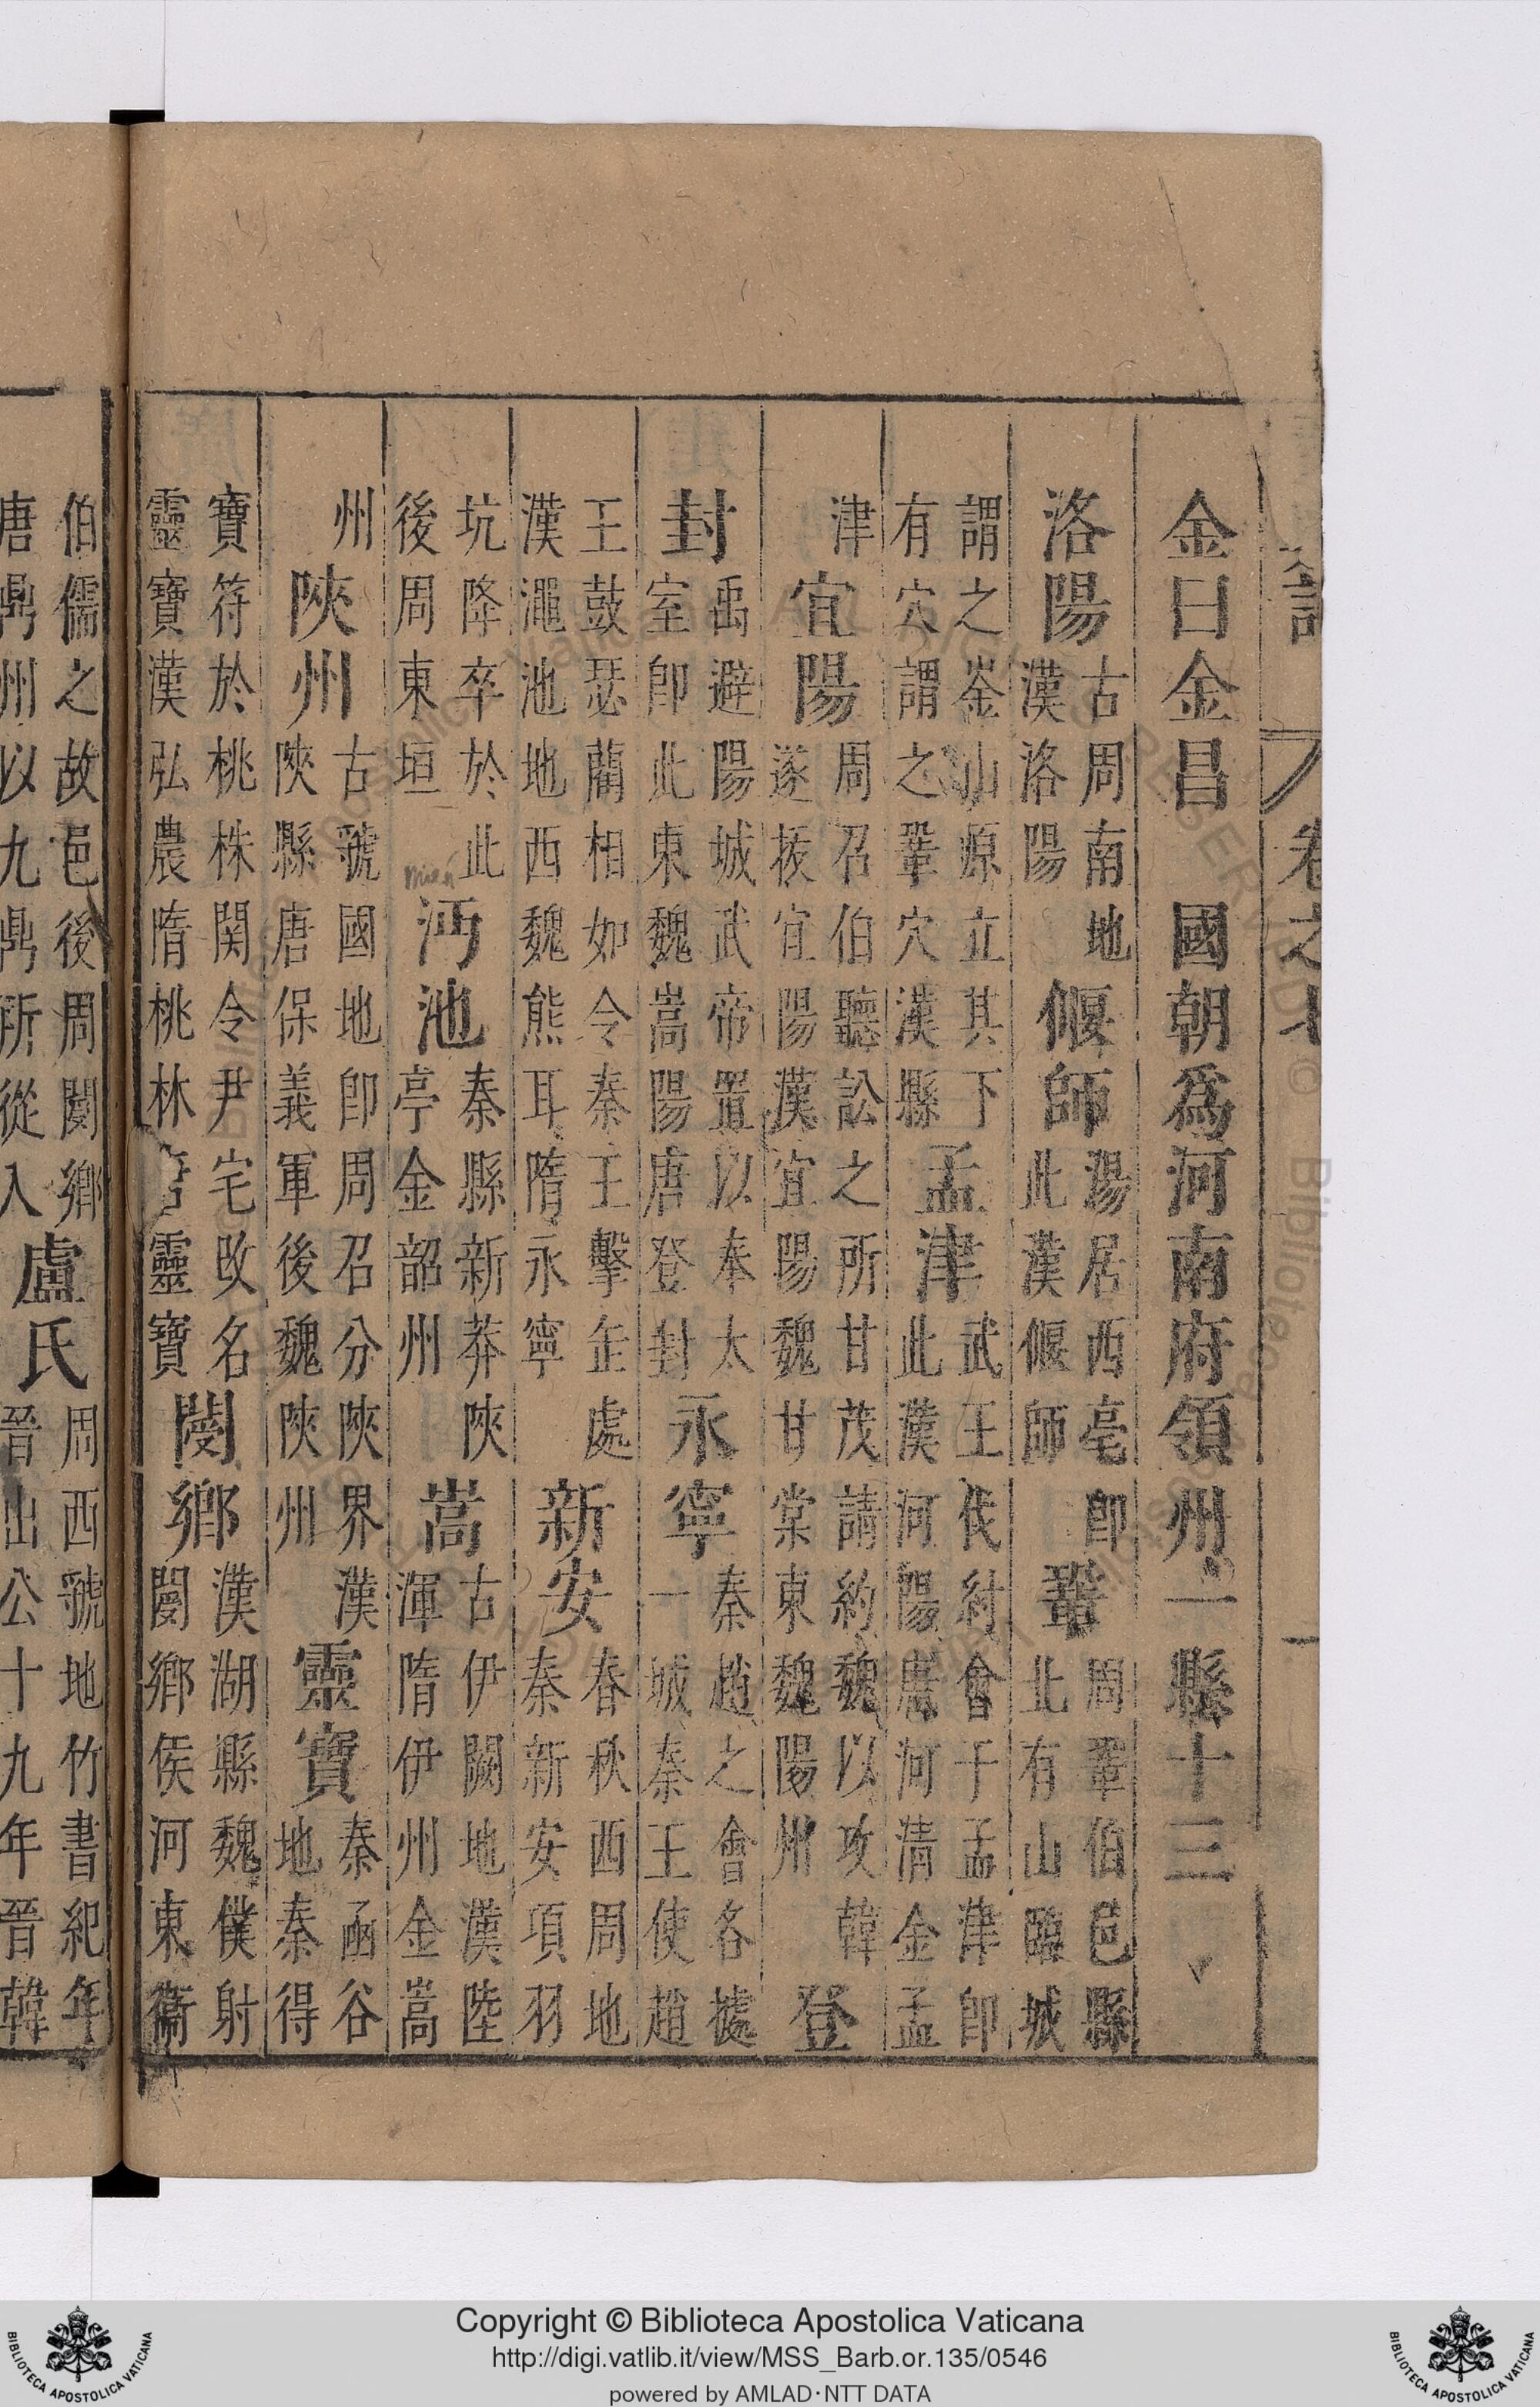 金日金昌　國朝爲河南府領州一縣十三
洛陽 古周南地
漢洛陽
偃師 湯居西亳卽
此漢偃師
鞏 周鞏伯邑縣
北有山臨城
謂之崟山原立其下
有穴謂之鞏穴漢縣
孟津 武王伐紂會于孟津卽
此漢河陽唐河清金孟
津
宜陽 周召伯聽訟之所甘茂請約魏以攻韓
遂拔宜陽漢宜陽魏甘棠東魏陽州
登
封 禹避陽城武帝置以奉太
室卽此東魏嵩陽唐登封
永寧 秦趙之會各據
一城秦王使趙
王鼓瑟藺相如令秦王擊缶處
漢澠池地西魏熊耳隋永寧
新安 春秋西周地
秦新安項羽
坑降卒於此
後周東垣
沔池 秦縣新莽陝
亭金韶州
嵩 古伊闕地漢陸
渾隋伊州金嵩
州
陝州 古虢國地卽周召分陝界漢
陝縣唐保義軍後魏陝州
靈寶 秦函谷
地秦得
寶符於桃株関令尹宅改名
靈寶漢弘農隋桃林靈寶
閿鄉 漢湖縣魏僕射
閿鄉侯河東衞
伯儒之故邑後周閿鄉
唐鼎州以九鼎所從入
盧氏 周西虢地竹書紀年
晉出公十九年晉韓
卷之
Copyright © Biblioteca Apostolica Vaticana
http://digi.vatlib.it/view/MSS_Barb.or.135/0546
powered by AMLAD·NTT DATA
BIBLIOTECA APOSTOLICA VATICANA
BIBLIOTECA APOSTOLICA VATICANA